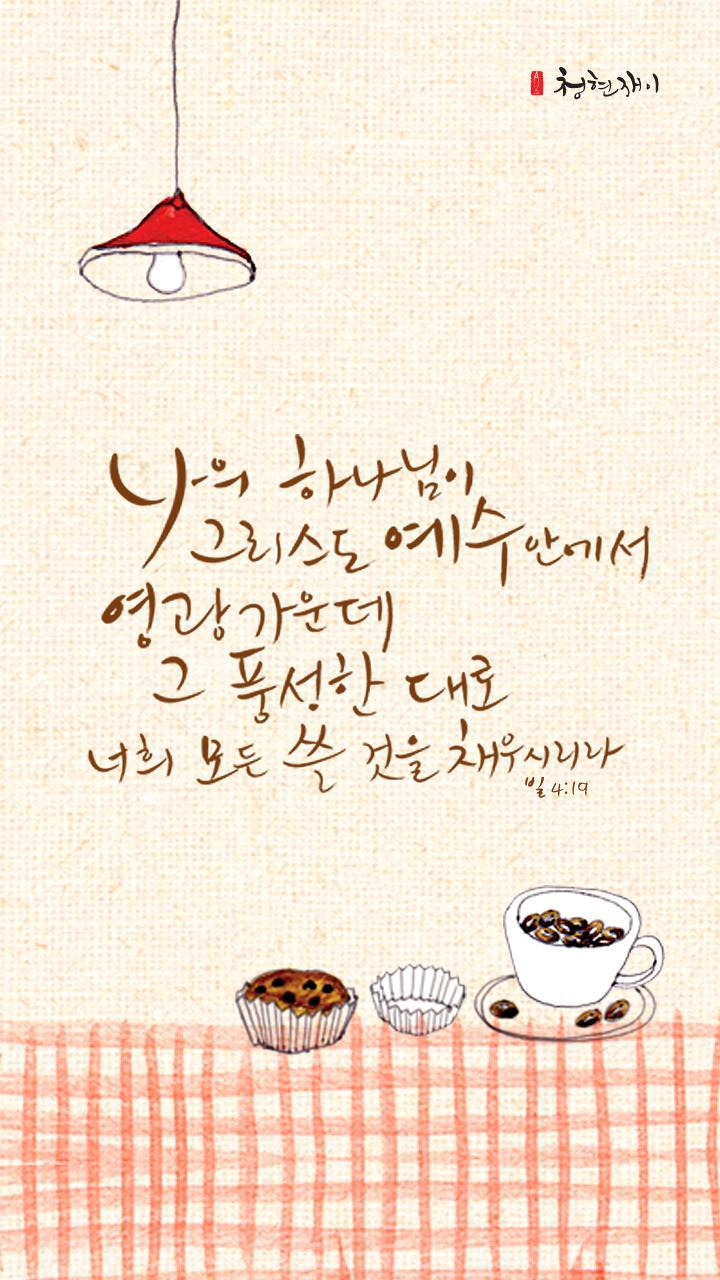 청현재이
나의 하나님이
그리스도 예수 안에서
영광 가운데
그 풍성한 대로
너희 모든 쓸 것을 채우시리라
빌 4:19